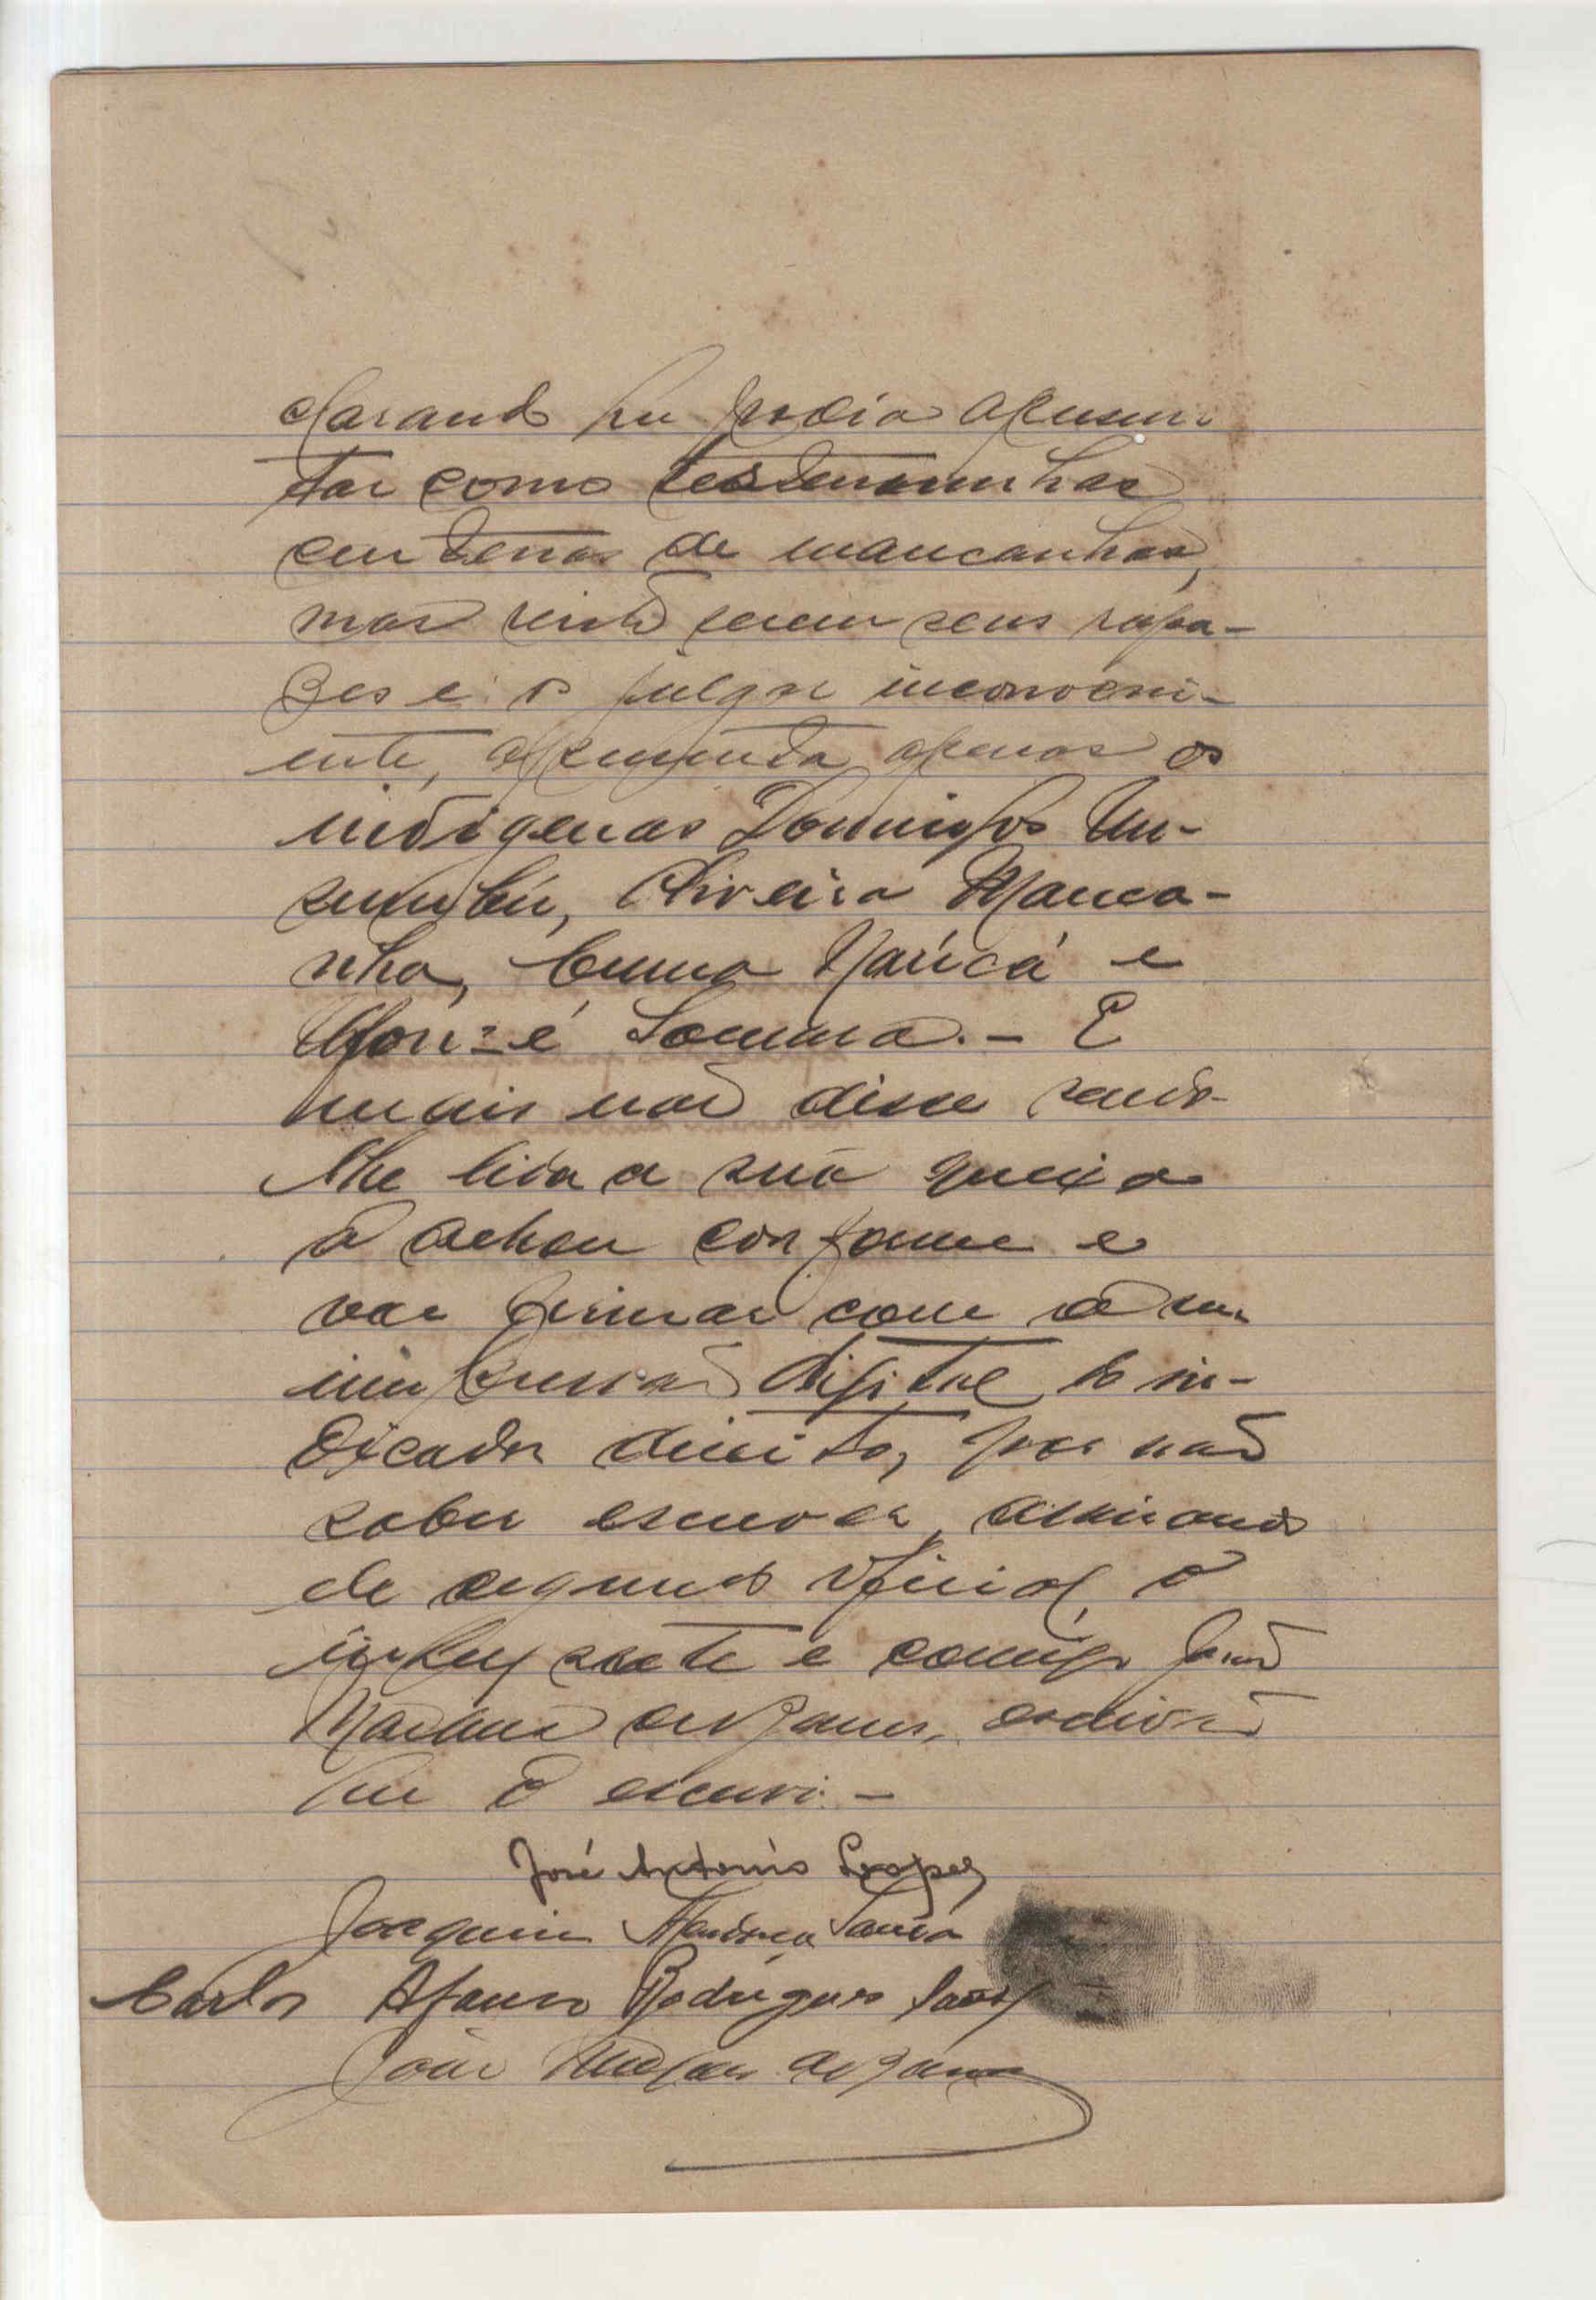 clarando que podia apresen-
tar como testemunhas
centenas de mancanhas,
mas visto serem seus rapa-
zes e o julgar inconveni-
ente, apresenta apenas os
indigenas Domingos Un-
Oliveira Manca-
nha, e
é E
mais não disse sendo-
lhe lida a sua queixa
a achou conforme e
vae firmar com a sua
impressão digital do in-
dicador direito, por não
saber escrever, assinando
de seguida oficial, o
interprete e comigo João
escrivão
que o escrevi. -
José Antonio Lopes
Joaquim
Carlos Afonso Rodrigues
João